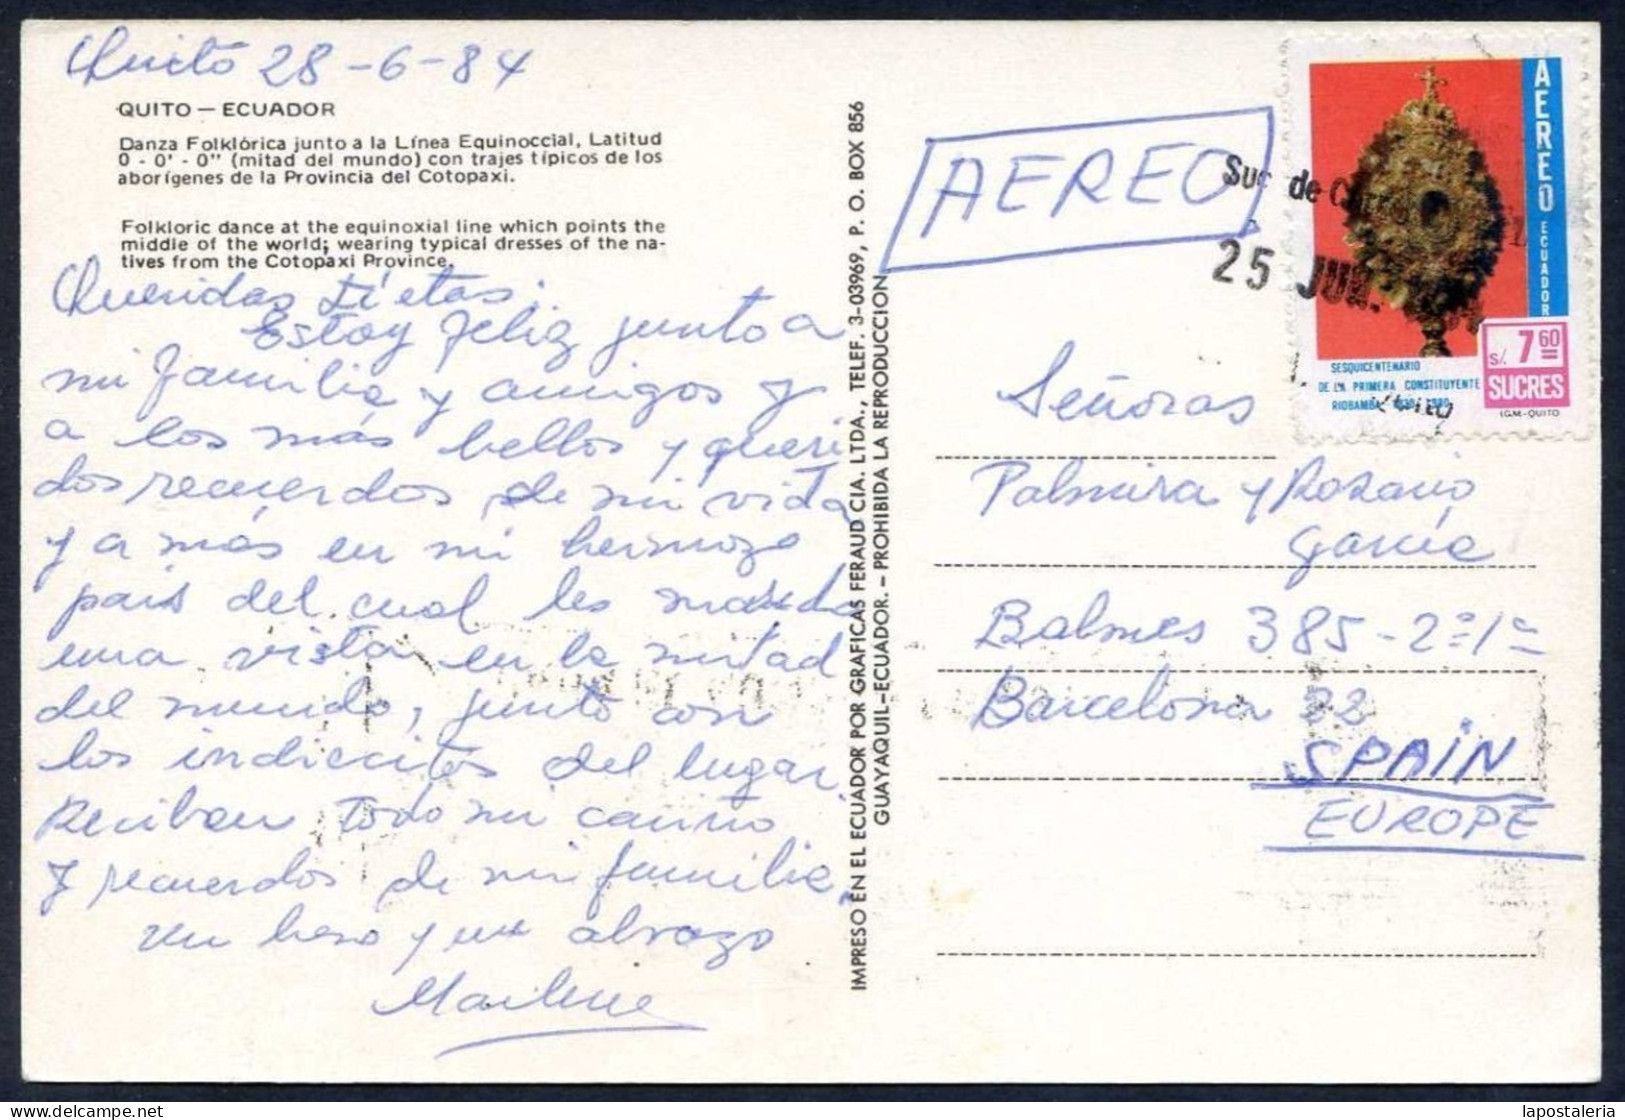 Quito 28-6-84
QUITO — ECUADOR
Danza Folklórica junto a la Línea Equinoccial, Latitud
0 - 0' - 0" (mitad del mundo) con trajes típicos de los
aborígenes de la Provincia del Cotopaxi.
Folkloric dance at the equinoxial line which points the
middle of the world; wearing typical dresses of the na-
tives from the Cotopaxi Province.
Queridas tíetas:
Estoy feliz junto a
mi familia y amigos y
a los más bellos y queri
dos recuerdos de mi vida
y a más en mi hermozo
país del cual les mando
una vista en la mitad
del mundo, junto con
los indiecitos del lugar.
Reciban todo mi cariño
y recuerdos de mi familia,
un beso y un abrazo
Marlene
IMPRESO EN EL ECUADOR POR GRAFICAS FERAUD CIA. LTDA., TELEF. 3-03969, P. O. BOX 856
GUAYAQUIL-ECUADOR. - PROHIBIDA LA REPRODUCCION
AEREO
Suc de
25 JUN.
AEREO ECUADOR
S/. 7 60
SUCRES
SESQUICENTENARIO
DE LA PRIMERA CONSTITUYENTE
RIOBAMBA 1830-1980
I.G.M-QUITO
Señoras
Palmira y Rosario
García
Balmes 385-2º-1ª
Barcelona 32
SPAIN
EUROPE
lapostaleria
www.delcampe.net